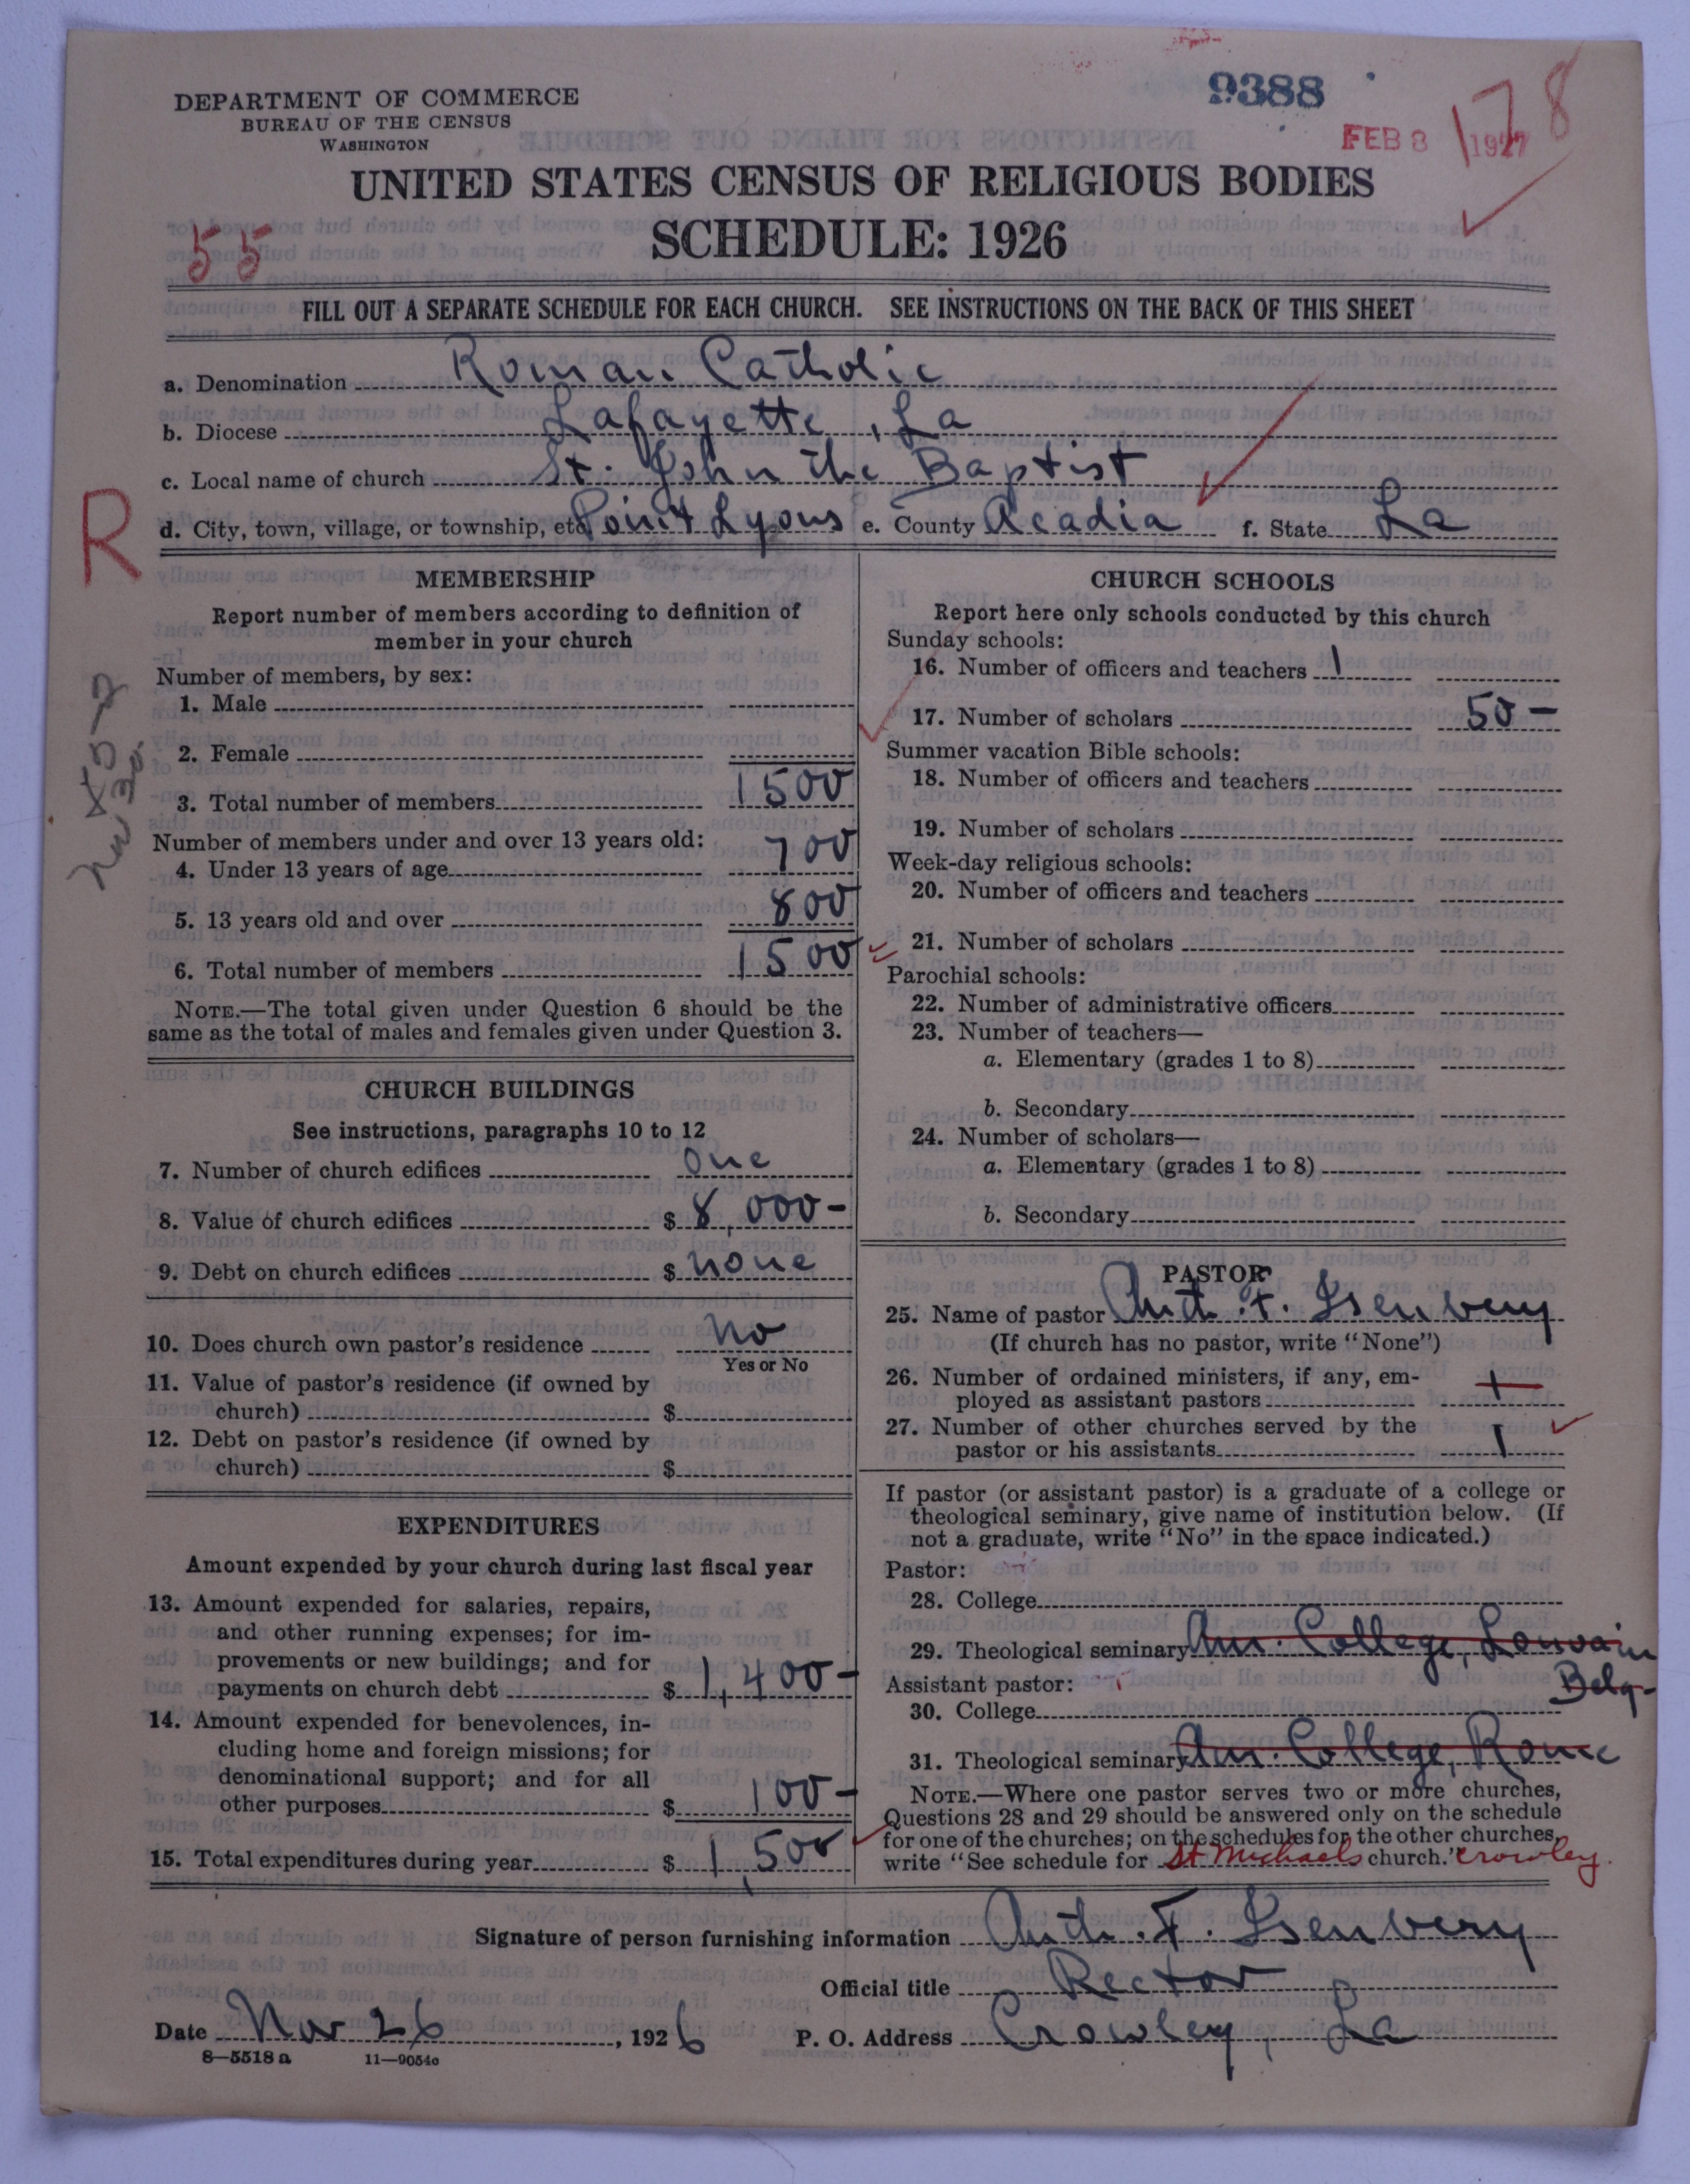 DEPARTMENT OF COMMERCE
BUREAU OF THE CENSUS
WASHINGTON
9388
FEB 8 1927
178
UNITED STATES CENSUS OF RELIGIOUS BODIES
SCHEDULE: 1926
55
FILL OUT A SEPARATE SCHEDULE FOR EACH CHURCH. SEE INSTRUCTIONS ON THE BACK OF THIS SHEET
a. Denomination Roman Catholic
b. Diocese Lafayette, La
c. Local name of church St. John the Baptist
R
d. City, town, village, or township, etc Point Lyons e. County Acadia f. State La
MEMBERSHIP
Report number of members according to definition of
member in your church
Number of members, by sex:
1. Male
2. Female
3. Total number of members 1500
Number of members under and over 13 years old:
4. Under 13 years of age 700
5. 13 years old and over 800
6. Total number of members 1500
NOTE.—The total given under Question 6 should be the
same as the total of males and females given under Question 3.
CHURCH BUILDINGS
See instructions, paragraphs 10 to 12
7. Number of church edifices One
8. Value of church edifices $ 8,000-
9. Debt on church edifices $ none
10. Does church own pastor's residence No
Yes or No
11. Value of pastor's residence (if owned by
church) $
12. Debt on pastor's residence (if owned by
church) $
EXPENDITURES
Amount expended by your church during last fiscal year
13. Amount expended for salaries, repairs,
and other running expenses; for im-
provements or new buildings; and for
payments on church debt $ 1,400-
14. Amount expended for benevolences, in-
cluding home and foreign missions; for
denominational support; and for all
other purposes $ 100-
15. Total expenditures during year $ 1,500
CHURCH SCHOOLS
Report here only schools conducted by this church
Sunday schools:
16. Number of officers and teachers 1
17. Number of scholars 50-
Summer vacation Bible schools:
18. Number of officers and teachers
19. Number of scholars
Week-day religious schools:
20. Number of officers and teachers
21. Number of scholars
Parochial schools:
22. Number of administrative officers
23. Number of teachers—
a. Elementary (grades 1 to 8)
b. Secondary
24. Number of scholars—
a. Elementary (grades 1 to 8)
b. Secondary
PASTOR
25. Name of pastor Anth. F. Isenbery
(If church has no pastor, write "None")
26. Number of ordained ministers, if any, em-
ployed as assistant pastors 1
27. Number of other churches served by the
pastor or his assistants 1
If pastor (or assistant pastor) is a graduate of a college or
theological seminary, give name of institution below. (If
not a graduate, write "No" in the space indicated.)
Pastor:
28. College
29. Theological seminary Am. College, Louvain
Belg-
Assistant pastor:
30. College
31. Theological seminary Am. College, Rome
NOTE.—Where one pastor serves two or more churches,
Questions 28 and 29 should be answered only on the schedule
for one of the churches; on the schedules for the other churches,
write "See schedule for St Michaels church." Crowley.
Signature of person furnishing information Anth. F. Isenbery
Official title Rector
Date Nov 26, 1926 P. O. Address Crowley, La
8—5518 a 11—9054c